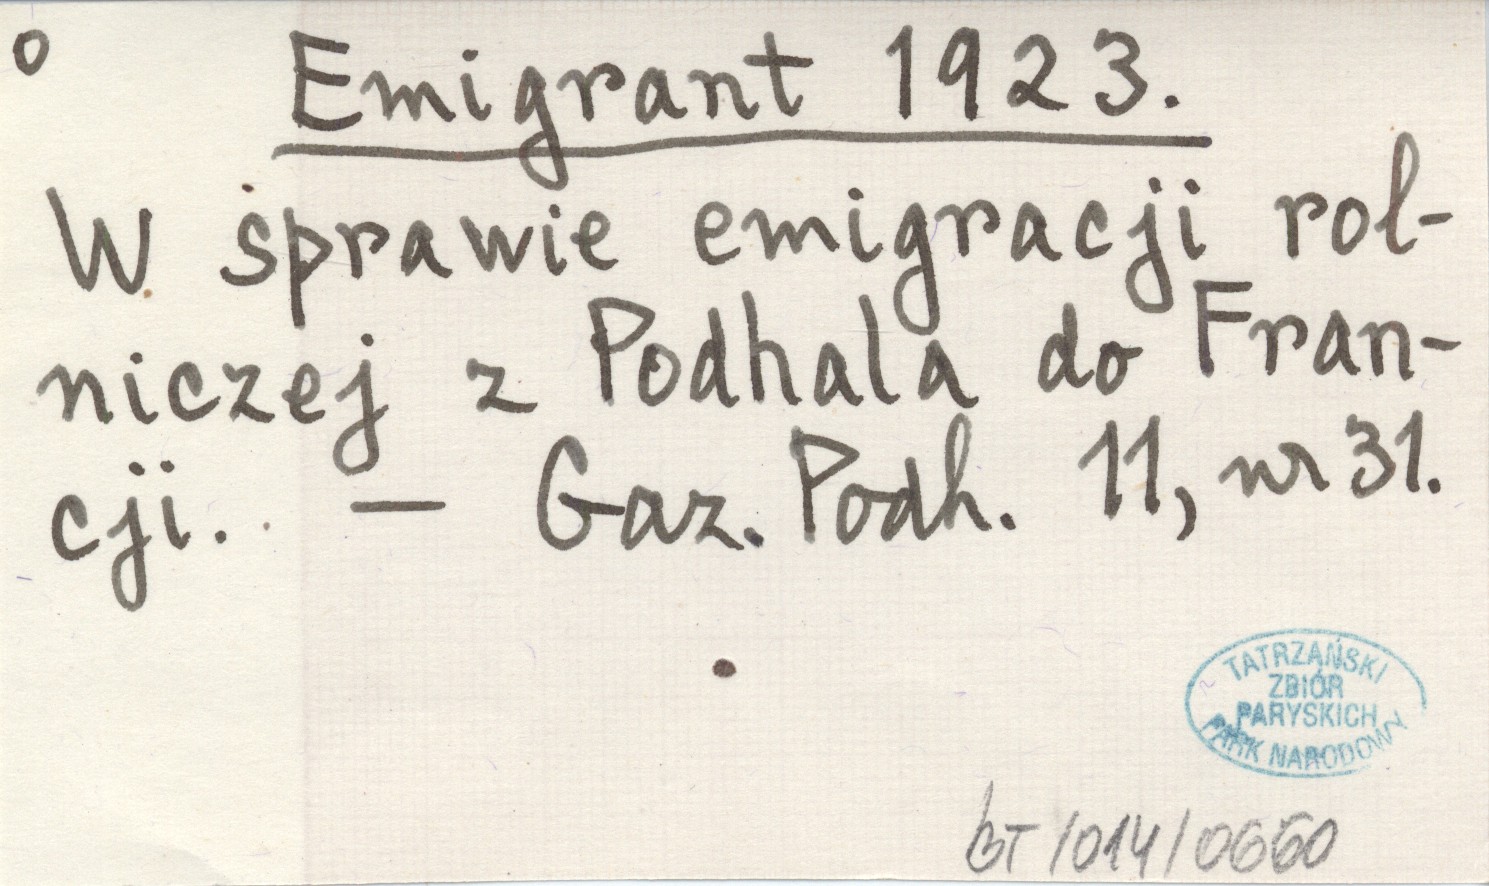 o
Emigrant 1923.
W sprawie emigracji rol-
niczej z Podhala do Fran-
cji. — Gaz. Podh. 11, nr 31.
TATRZAŃSKI
ZBIÓR
PARYSKICH
PARK NARODOWY
BT/014/0660